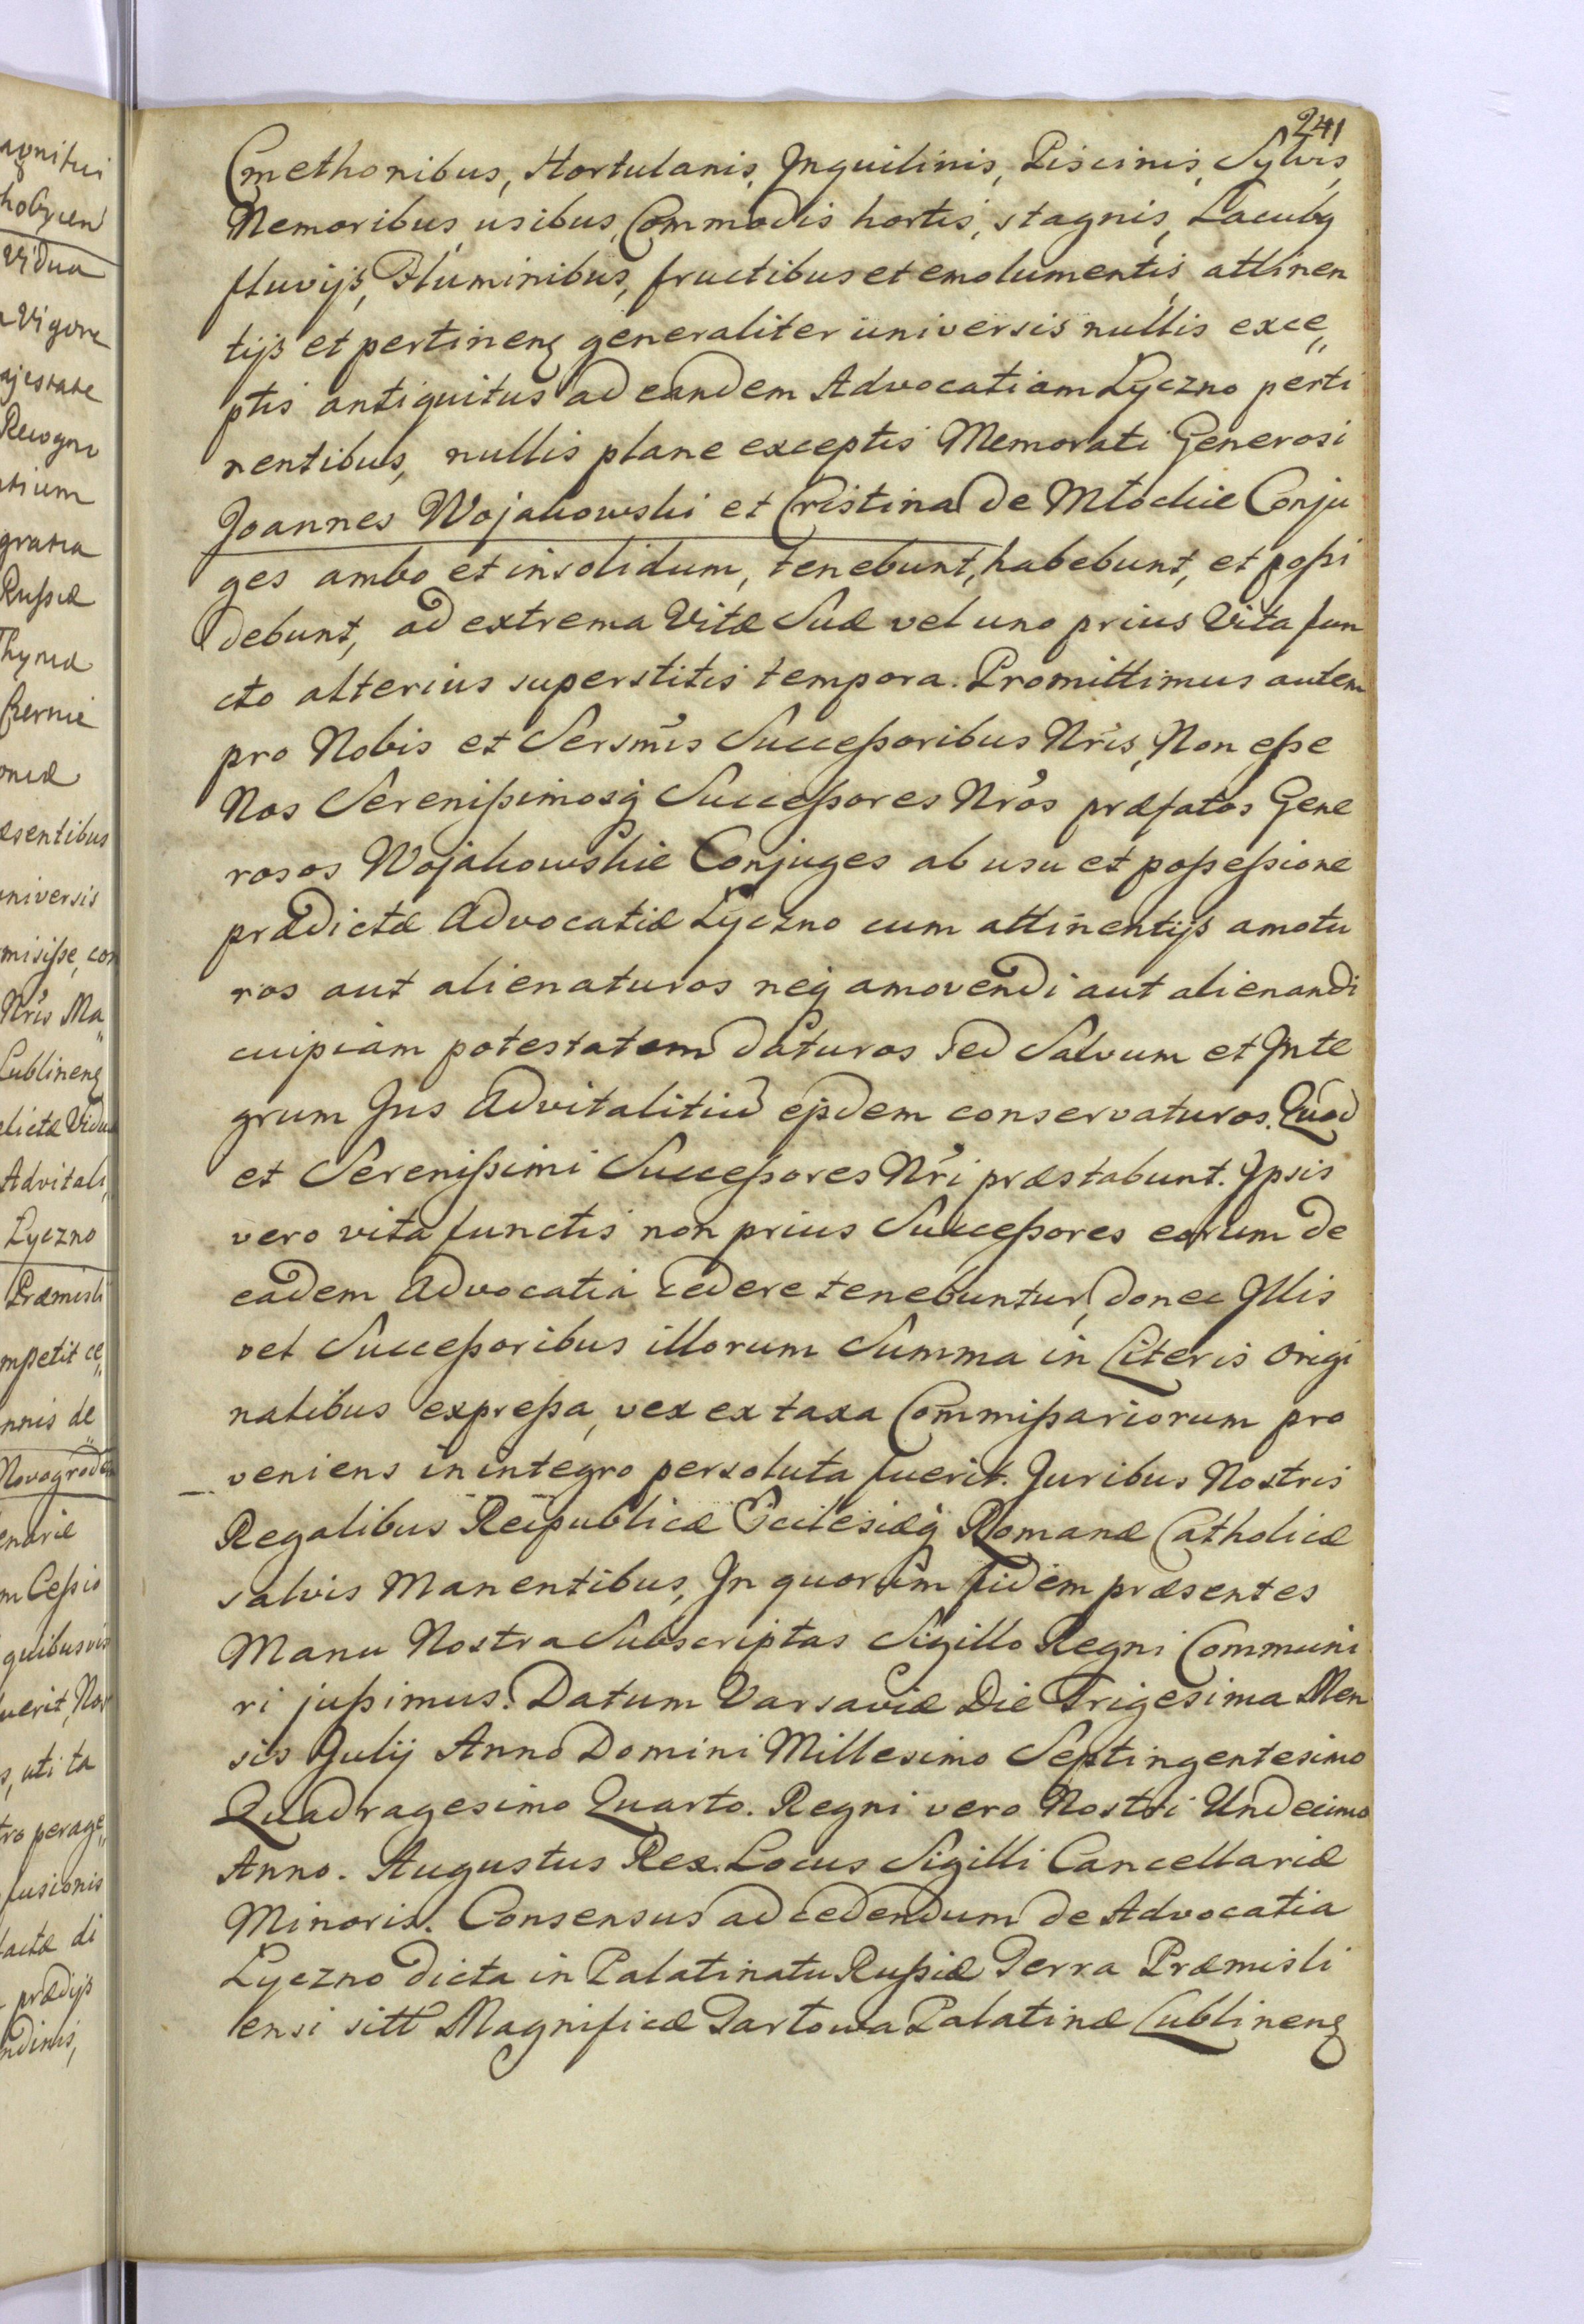 241
Cmethonibus, Hortulanis, Inquilinis, Piscinis, Sylvis,
Nemoribus, usibus, Commodis hortis, stagnis, Lacubq
fluvijs, Fluminibus, fructibus et emolumentis, attinen
tijs et pertinenq generaliter universis nullis exce„
ptis antiquitus ad eandem Advocatiam Lyczno perti
nentibus, nullis plane exceptis Memorati Generosi
Joannes Wojakowski et Cristina de Młockie Conju
ges ambo et insolidum, tenebunt, habebunt, et poßi
debunt, ad extrema Vitæ Suæ vel uno prius Vita fun
cto alterius superstitis tempora. Promittimus autem
pro Nobis et Sersm̃is Succeßoribus Nr̃is, Non eße
Nos Serenißimosq̃ Succeßores Nr̃os præfatos Gene
rosos Wojakowskie Conjuges ab usu et poßeßione
prædictæ Advocatiæ Lyczno cum attinentijs amotu
ros aut alienaturos neq̃ amovendi aut alienandi
cuipiam potestatem daturos sed Salvum et Inte
grum Jus Advitalitiũ ejsdem conservaturos. Quod
et Serenißimi Succeßores Nr̃i præstabunt. Ipsis
vero vita functis non prius Succeßores eorum de
eadem Advocatia cedere tenebuntur, donec Illis
vel Succeßoribus illorum Summa in Literis origi
nalibus expreßa, vex ex taxa Commißariorum pro
veniens in integro persoluta fuerit. Juribus Nostris
Regalibus Reipublicæ Ecclesiæq̃ Romanæ Catholicæ
salvis Manentibus, In quorum fidem præsentes
Manu Nostra Subscriptas Sigillo Regni Communi
ri jußimus. Datum Varsaviæ Die Trigesima Men
sis Julij Anno Domini Millesimo Septingentesimo
Quadragesimo Quarto. Regni vero Nostri Undecimo
Anno. Augustus Rex. Locus Sigilli Cancellariæ
Minoris. Consensus ad cedendum de Advocatia
Lyczno dicta in Palatinatu Rußiæ Terra Præmisli
ensi sitt Magnificæ Tartowa Palatinæ Lublinenq